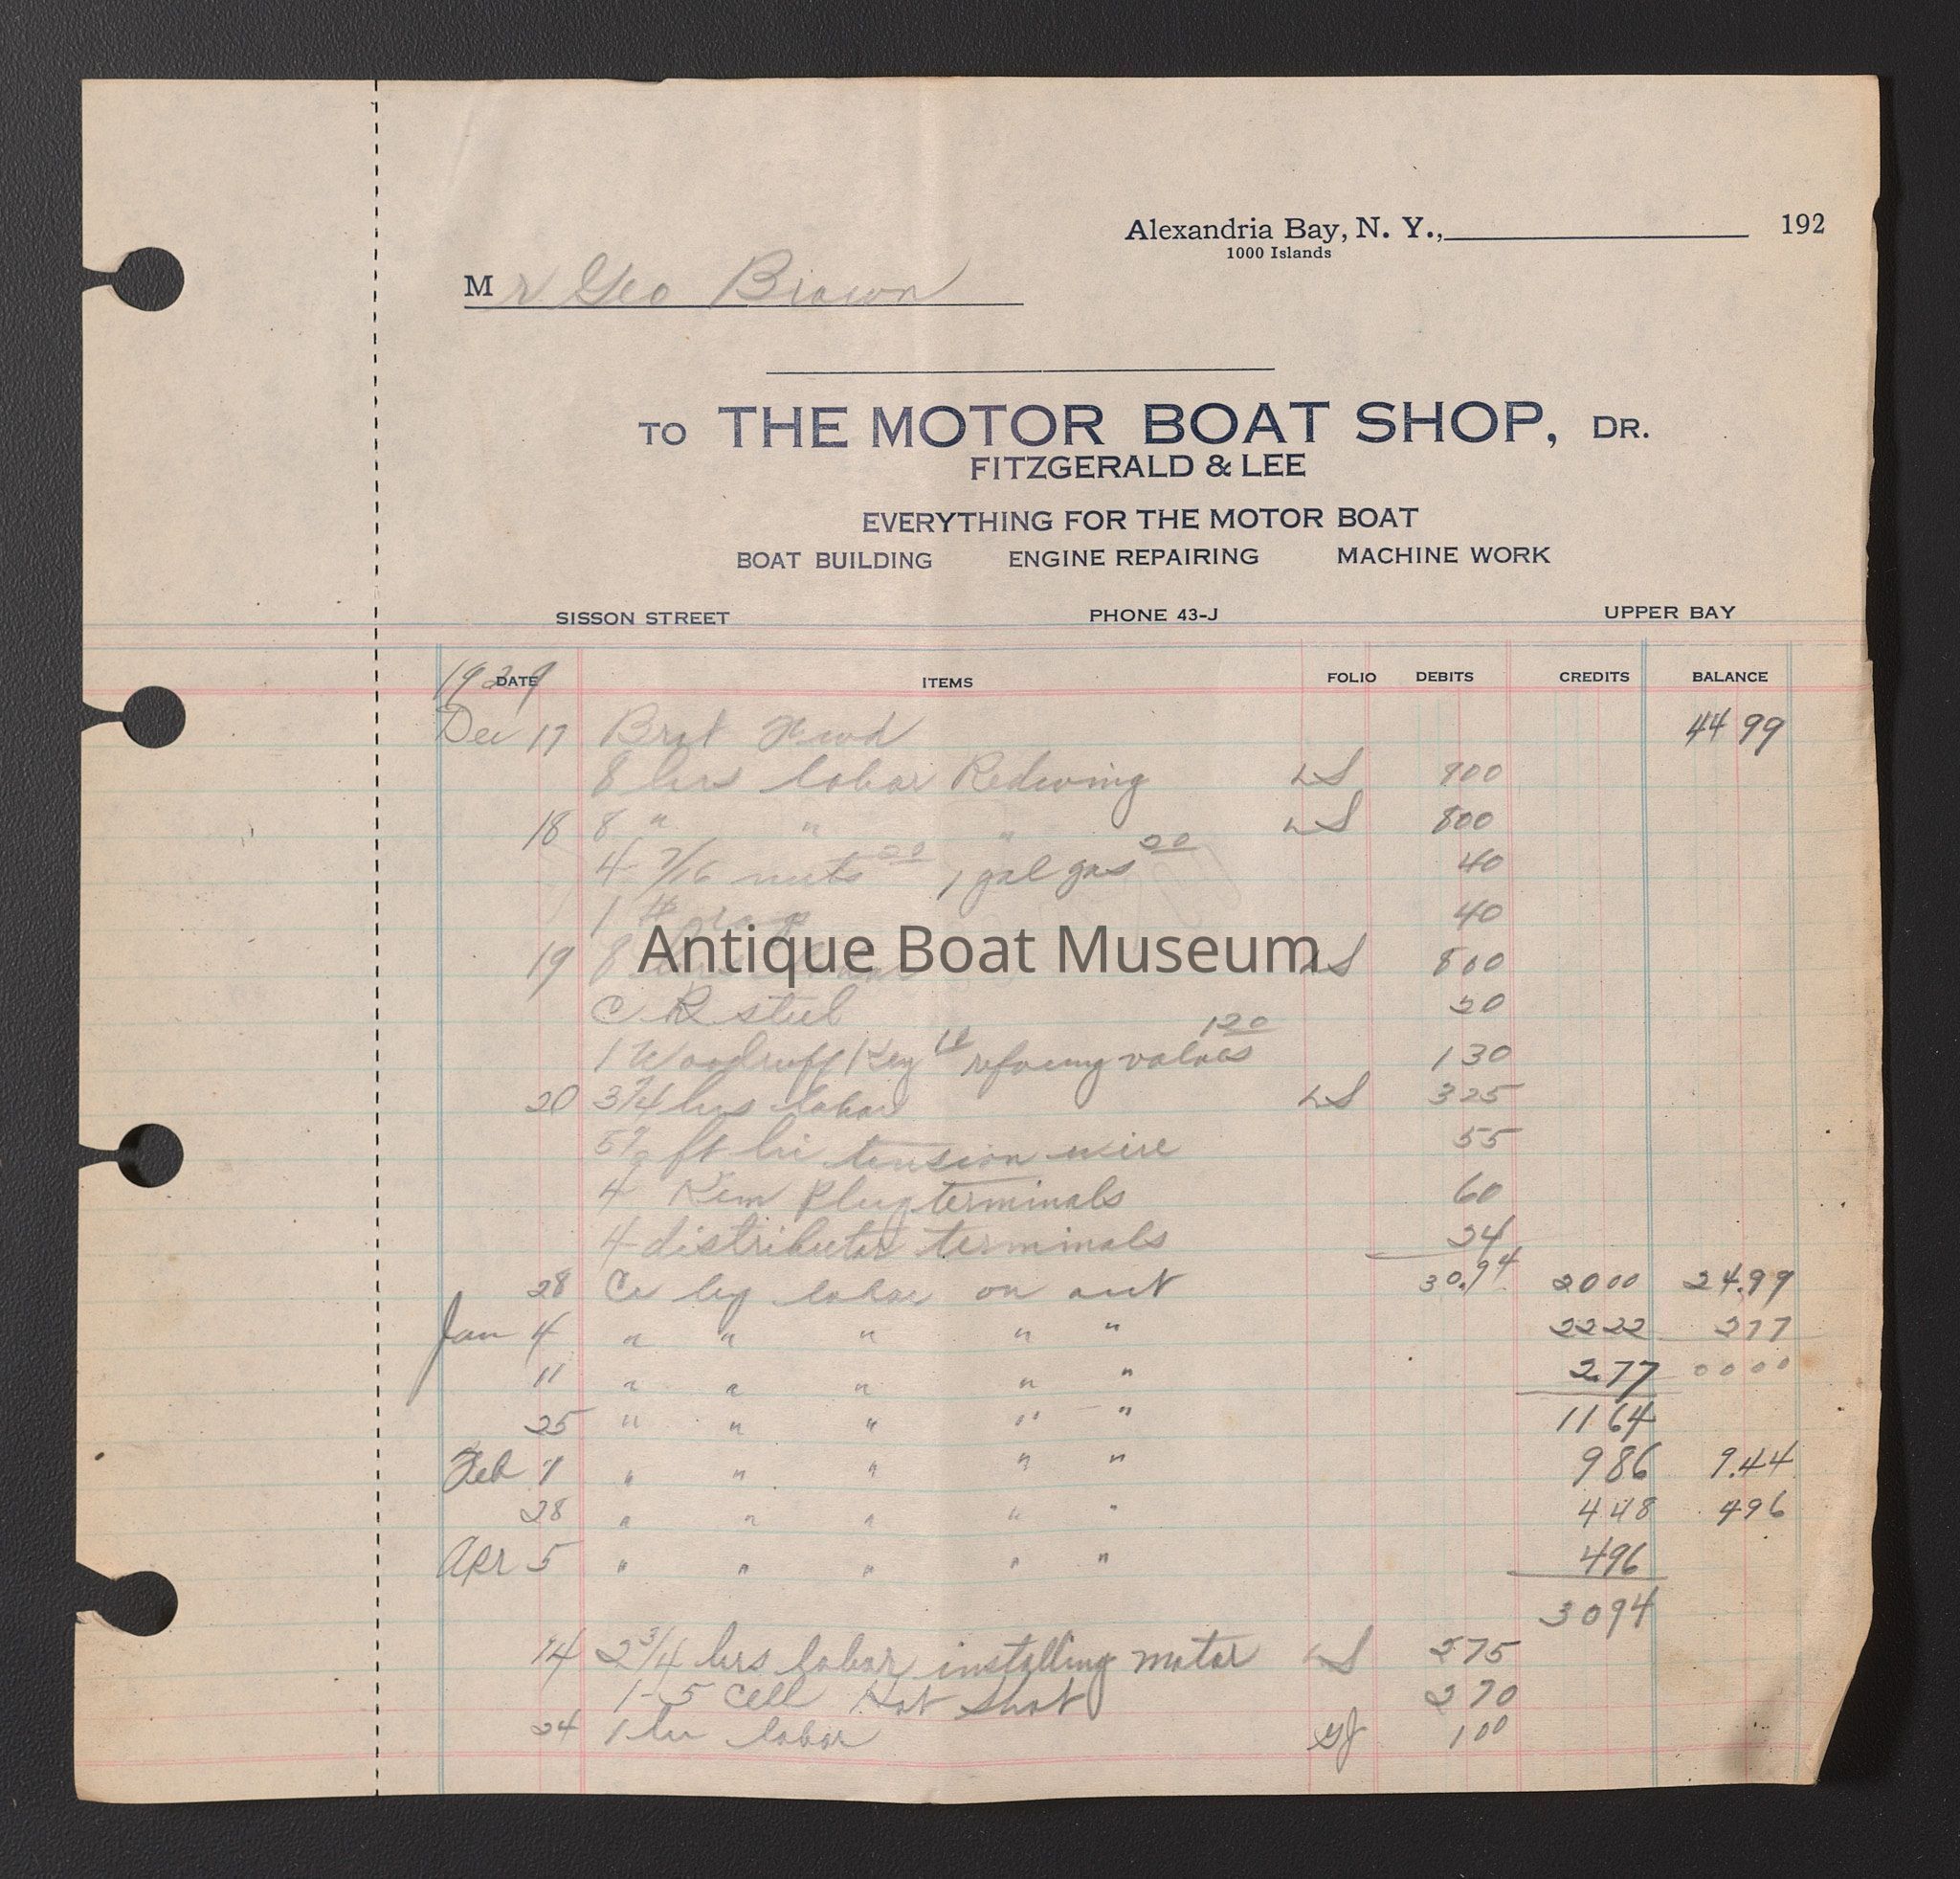 Alexandria Bay, N. Y., 192
1000 Islands
Mr Geo Brown
TO THE MOTOR BOAT SHOP, DR.
FITZGERALD & LEE
EVERYTHING FOR THE MOTOR BOAT
BOAT BUILDING ENGINE REPAIRING MACHINE WORK
SISSON STREET PHONE 43-J UPPER BAY
1929
DATE ITEMS FOLIO DEBITS CREDITS BALANCE
Dec 17 Brot Fwd 44 99
8 hrs labor Redwing LS 800
18 8 " " " LS 800
4 7/16 nuts 20 1 gal gas 20 40
1 # 40
Antique Boat Museum
19 8 LS 800
C R steel 20
1 Woodruff Key 10 refacing valves 120 130
20 3 1/4 hrs labor LS 325
5 1/2 ft hi tension wire 55
4 Rem Plug terminals 60
4 distributor terminals 24
30.94
28 Cr by labor on act 2000 24.99
Jan 4 " " " " " 2222 277
11 " " " " " 277 0000
25 " " " " " 1164
Feb 1 " " " " " 986 9.44
28 " " " " " 448 496
Apr 5 " " " " " 496
3094
14 2 3/4 hrs labor installing motor LS 275
1-5 cell Hot Shot 270
24 1 hr labor 100